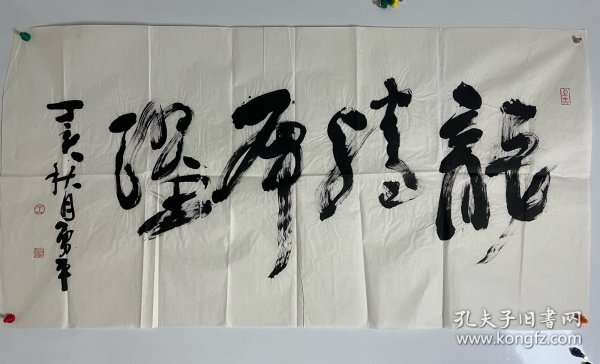 龍騰虎躍
丁亥秋月
孔夫子旧书网
www.kongfz.com